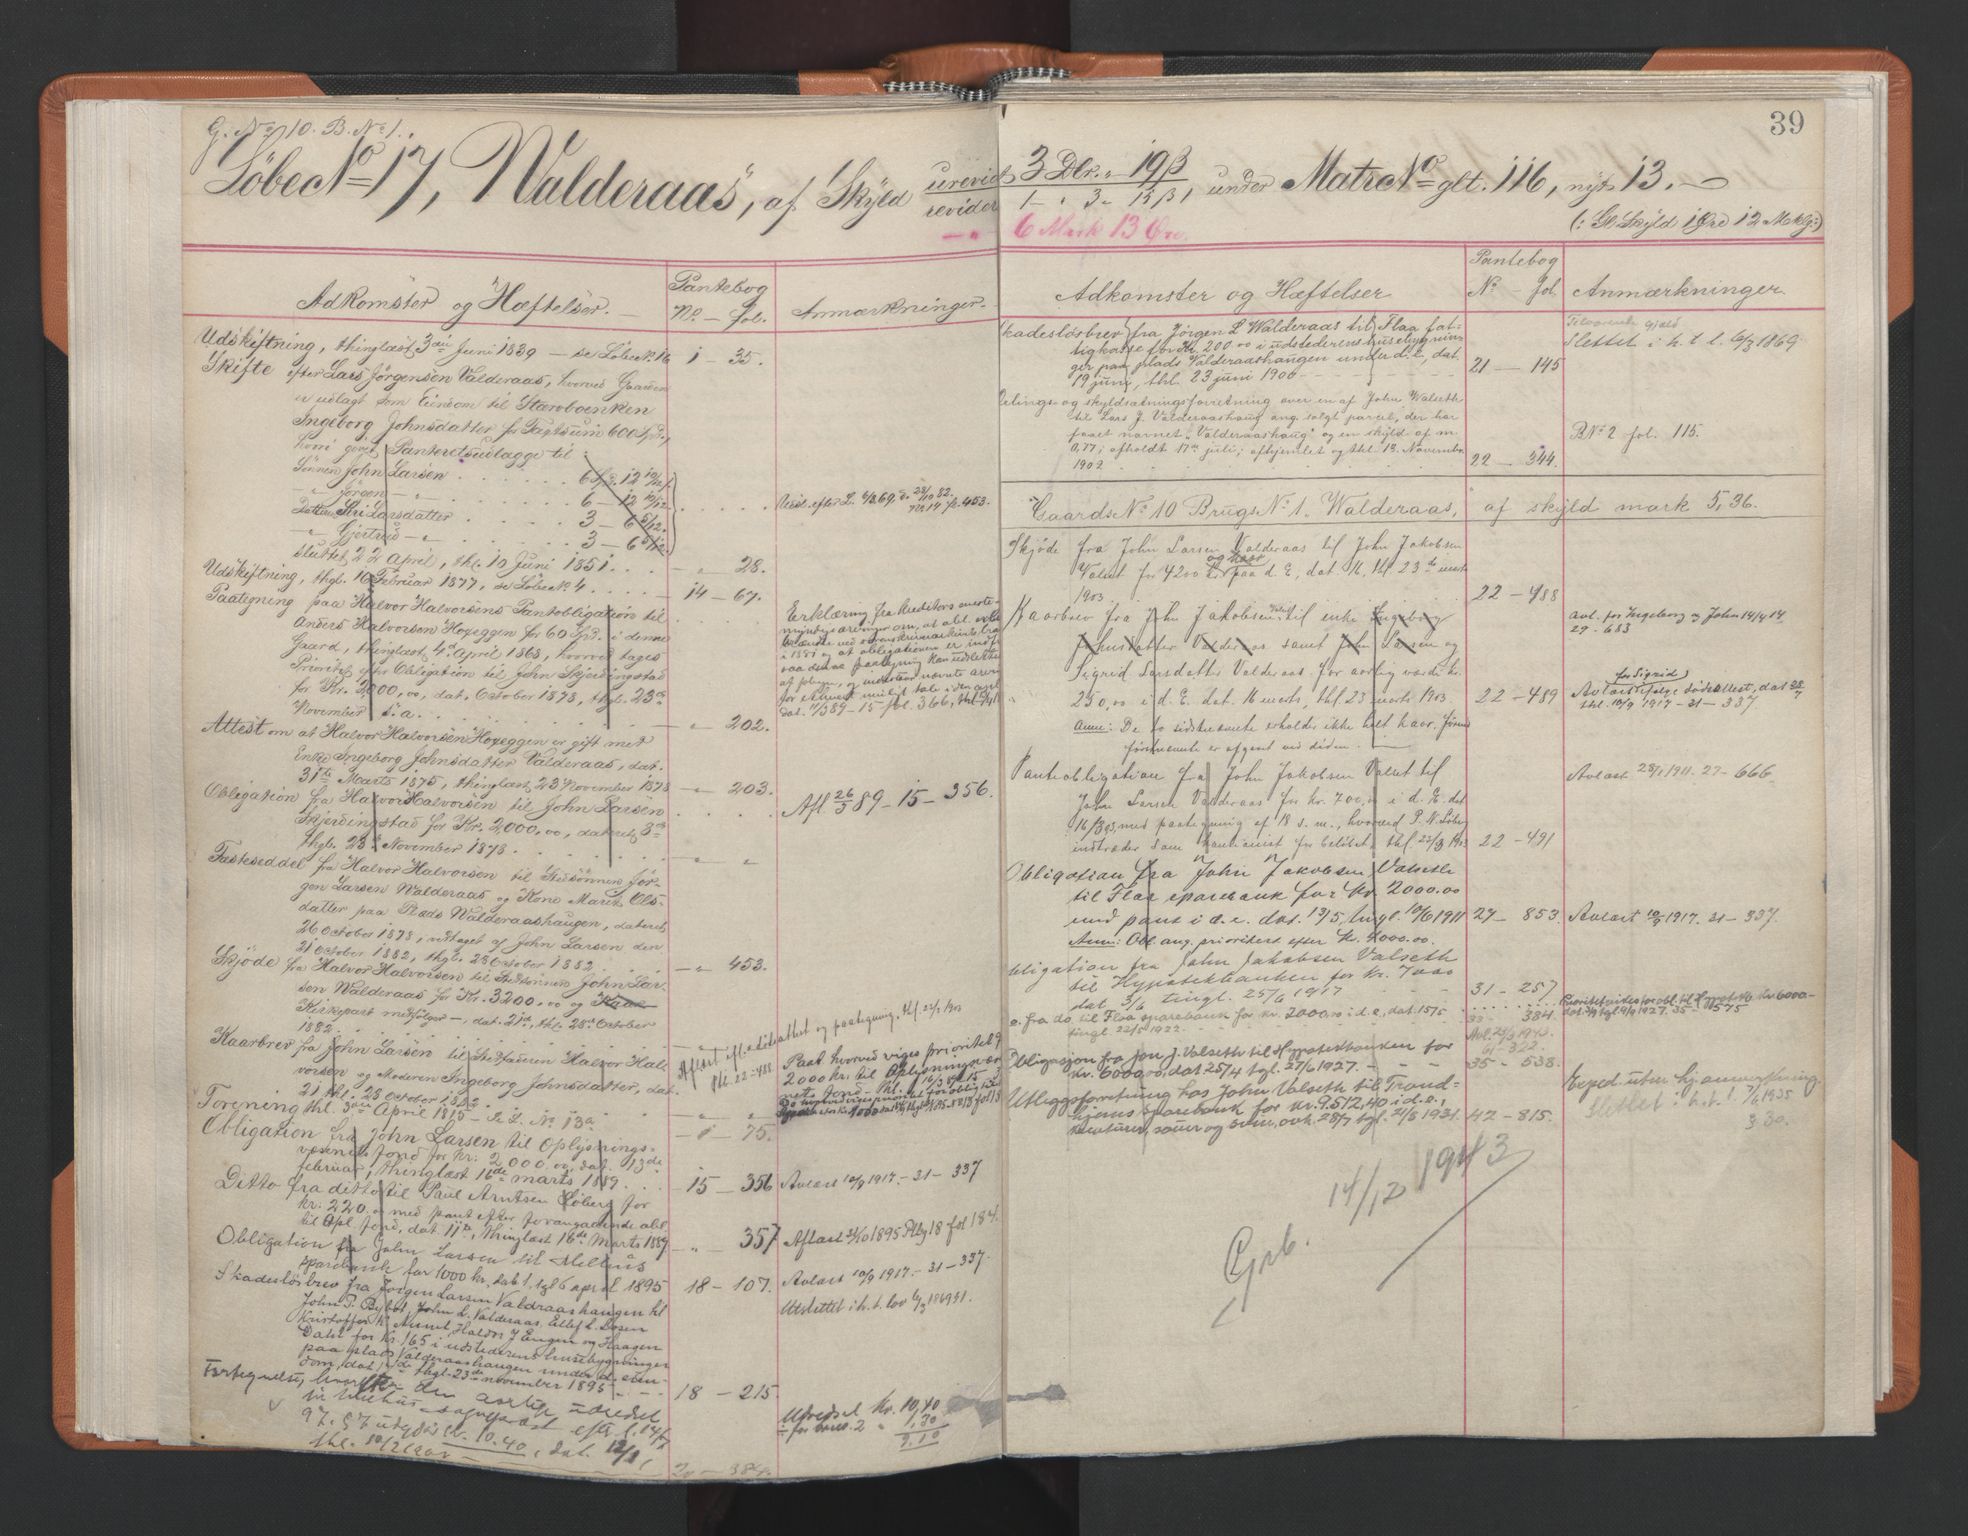 G. No 10. B. No 1.
39
Løbe No 17, "Walderaas", af Skyld urevid. 3 Dlr. " 19 β under Matr No glt. 116, nyt 13.
revider 1 " 3 " 15 β
6 Mark 13 Øre.
(: Gl. Skyld 1 Øre 12 Mklg:)
Adkomster og Hæftelser.
Pantebog
No. — fol.
Anmærkninger.
Udskiftning, thinglæst 3die Juni 1839 — se Løbe No 16 1 — 35.
Skifte efter Lars Jørgensen Valderaas, hvorved Gaarden
er udlagt som Eiendom til Stervboenken
Ingeborg Johnsdatter for Taxtsum 600 Spd.,
hvori givet Panteretsudlægge til:
Sønnen John Larsen 6 Sp. 12 10/12 β.
— " Jørgen — " 6 — 12 10/12
Datter Siri Larsdatter 3 — 6 5/12
— " Gjertrud — " 3 — 6 5/12
Udsl. efter L. 6/3 69, d. 28/10 82. No 14 f. 453.
sluttet 22 April, thl. 10 Juni 1851. — " 28.
Udskiftning, thgl. 16 Februar 1877, se Løbe No 4 14 — 67.
Paategning paa Halvor Halvorsens Pantobligation til
Anders Halvorsen Hoxeggen for 60 Spd. i denne
Gaard, thinglæst 4de April 1868, hvorved tages
Prioritet efter Obligation til John Skjerdingstad
for Kr. 2000,00, dat. October 1878, thgl. 23de
November s. a. — " 202.
Erklæring fra kreditors
i 1881 og at obligationen er indf
Attest om at Halvor Halvorsen Hoxeggen er gift med
Enke Ingeborg Johnsdatter Valderaas, dat.
31te Marts 1875, thinglæst 23 November 1878 — " 203.
Obligation fra Halvor Halvorsen til John Larsen
Skjerdingstad for Kr. 2,000,00, dateret 3de
thgl. 23de November 1878. — " "
Afl. 26/3 89 — 15 — 356.
Fæsteseddel fra Halvor Halvorsen til Stedsønnen Jør-
gen Larsen Walderaas og Kone Marit Ols-
datter paa Plads Walderaashaugen, dateret
26 October 1878, vedtaget af John Larsen den
21 October 1882, thgl. 28 October 1882 — " 453.
Skjøde fra Halvor Halvorsen til Stedsønnen John Lar-
sen Walderaas for Kr. 3200,00 og Kaar
Kirkepart medfølger —, dat. 21de, thl. 28de October
1882.
Kaarbrev fra John Larsen til Stedfaderen Halvor Hal-
vorsen og Moderen Ingeborg Johnsdatter, dat.
21 thl. 28 October 1882 — " "
Aflæst efter dødsattest og paategning, thl. 23/3 1903
Pbl. 22 — 488
Paat. hvorved viges prioritet f
2000 kr. til Oplysningsvæs-
nets fond. Thl. 16/3 89 15
Forening thl. 3die April 1815 — Se L. No 13a — 1 — 75.
Obligation fra John Larsen til Oplysnings-
væsenets fond for kr. 2000,00, dat. 13de
februar, thinglæst 16de marts 1889. 15 — 356
Avlæst 10/9 1917. — 31 — 337
Ditto fra ditto til Paul Arntsen Løberg for
kr. 220,00 med pant efter foranstaaende obl.
til Opl. fond, dat. 11te, thinglæst 16de Marts 1889 — " 357
Aflæst 21/10 1895 Pbg 18 fol 184.
Obligation fra John Larsen til Melhus
sparebank for 1000 kr., dat. 1. tgl 6 april 1895 18 — 107.
Avlæst 10/9 1917. — 31 — 337.
Skadesløsbrev fra Jørgen Larsen Valdraashaugen til
John P. Bybot, John L. Valderaas, Ellef L. Losen
Kristoffer K. Aunet, Haldor J Engen og Haagen
Dahl for Kr. 165 i udstederens husebygninger
paa plads Valderaashaugen under d. eien-
dom, dat. 1ste thgl. 23de november 1895 18 — 215.
Udslettet i h. t. lov 6/3 1869 § 1.
Fortegnelse, hvorefter den aarlige udredsel
97. § 7 udgjør kr. 10.40, dat. 12/1
thl. 10/2 1900 20 — 384.
Udredsel Kr. 10,40
÷ for brn. 2 " 1,30
9,10
Adkomster og Hæftelser
Pantebog
No — fol.
Anmærkninger.
Skadesløsbrev fra Jørgen L Walderaas til Flaa fat-
tigkasse for Kr. 200.00 i udstederens husebygnin-
ger paa plads Valderaashaugen under d. e., dat.
19 juni, thl. 23 juni 1900 21 — 145
Slettet i h. t. l. 6/3 1869.
Delings- og skyldsætningsforretning over en af John Walseth
til Lars J. Valderaashaug ang. solgt parcel, der har
faaet navnet "Valderaashaug" og en skyld af m.
0,77; afholdt 17de juli; afhjemlet og thl. 13. November
1902 22 — 344.
B No 2 fol. 115.
Gaards No 10 Brugs No 1. Walderaas, af skyld mark 5,36.
Skjøde fra John Larsen Valderaas til John Jakobsen
Valset for 4200 kr. og kaar paa d. E., dat. 16, thl. 23de marts
1903. 22 — 488
Kaarbrev fra John Jakobsen Valset til enke Ingeborg
Johnsdatter Valderaas samt John Larsen og
Sigrid Larsdatter Valderaas for aarlig værdi kr.
250,00 i d. E. dat. 16 marts, thl. 23 marts 1903. 22 — 489
avl. for Ingeborg og John 14/4 14
29 - 683
for Sigrid
Avlæst ifølge dødsattest, dat. 28/7
thl. 10/9 1917 — 31 — 337.
Anm: De to sidstnævnte erholder ikke helt kaar, førend
førstnævnte er afgaaet ved døden.
Pantobligation fra John Jakobsen Valset til
John Larsen Valderaas for kr. 700,00 i d. E. dat
16/3 03, med paategning af 18 s. m., hvorved P. N. Løberg
indtræder som kautionist for beløbet, thl. 23/3 1903 22 — 491
Avlæst 28/1 1911. 27 — 666
Obligation fra John Jakobsen Valseth
til Flaa sparebank for kr. 2000.00
med pant i d. e. dat. 13/5, tingl. 10/6 1911 27 — 853.
Avlæst 10/9 1917. 31 — 337.
Anm: Obl. ang. prioritert efter kr. 4000.00.
Obligation fra John Jakobsen Valseth
til Hypotekbanken for kr. 7000
dat. 3/6 tingl. 25/6 1917 31 — 257
o. fra do. til Flaa sparebank for kr. 2000.00 i d. e., dat. 15/5
tingl. 22/5 1922. 33 — 384.
Avl. 1940.
61 — 322.
Obligasjon fra Jon J. Valseth til Hypotekbanken for
kr. 6000,00, dat. 25/4 tgl. 27/6 1927. 35 — 538.
Utleggsforretning hos John Valseth til Trond-
hjems sparebank for kr. 9.512,40 i d. e.,
kreaturer, sauer og svin, avh. 28/7 tgl. 21/8 1931. 42 — 815.
Exped. uten hj. anmerkning
Slettet i h. t. l. 7/6 1935
§ 30.
Gjrb. 14/12 1943